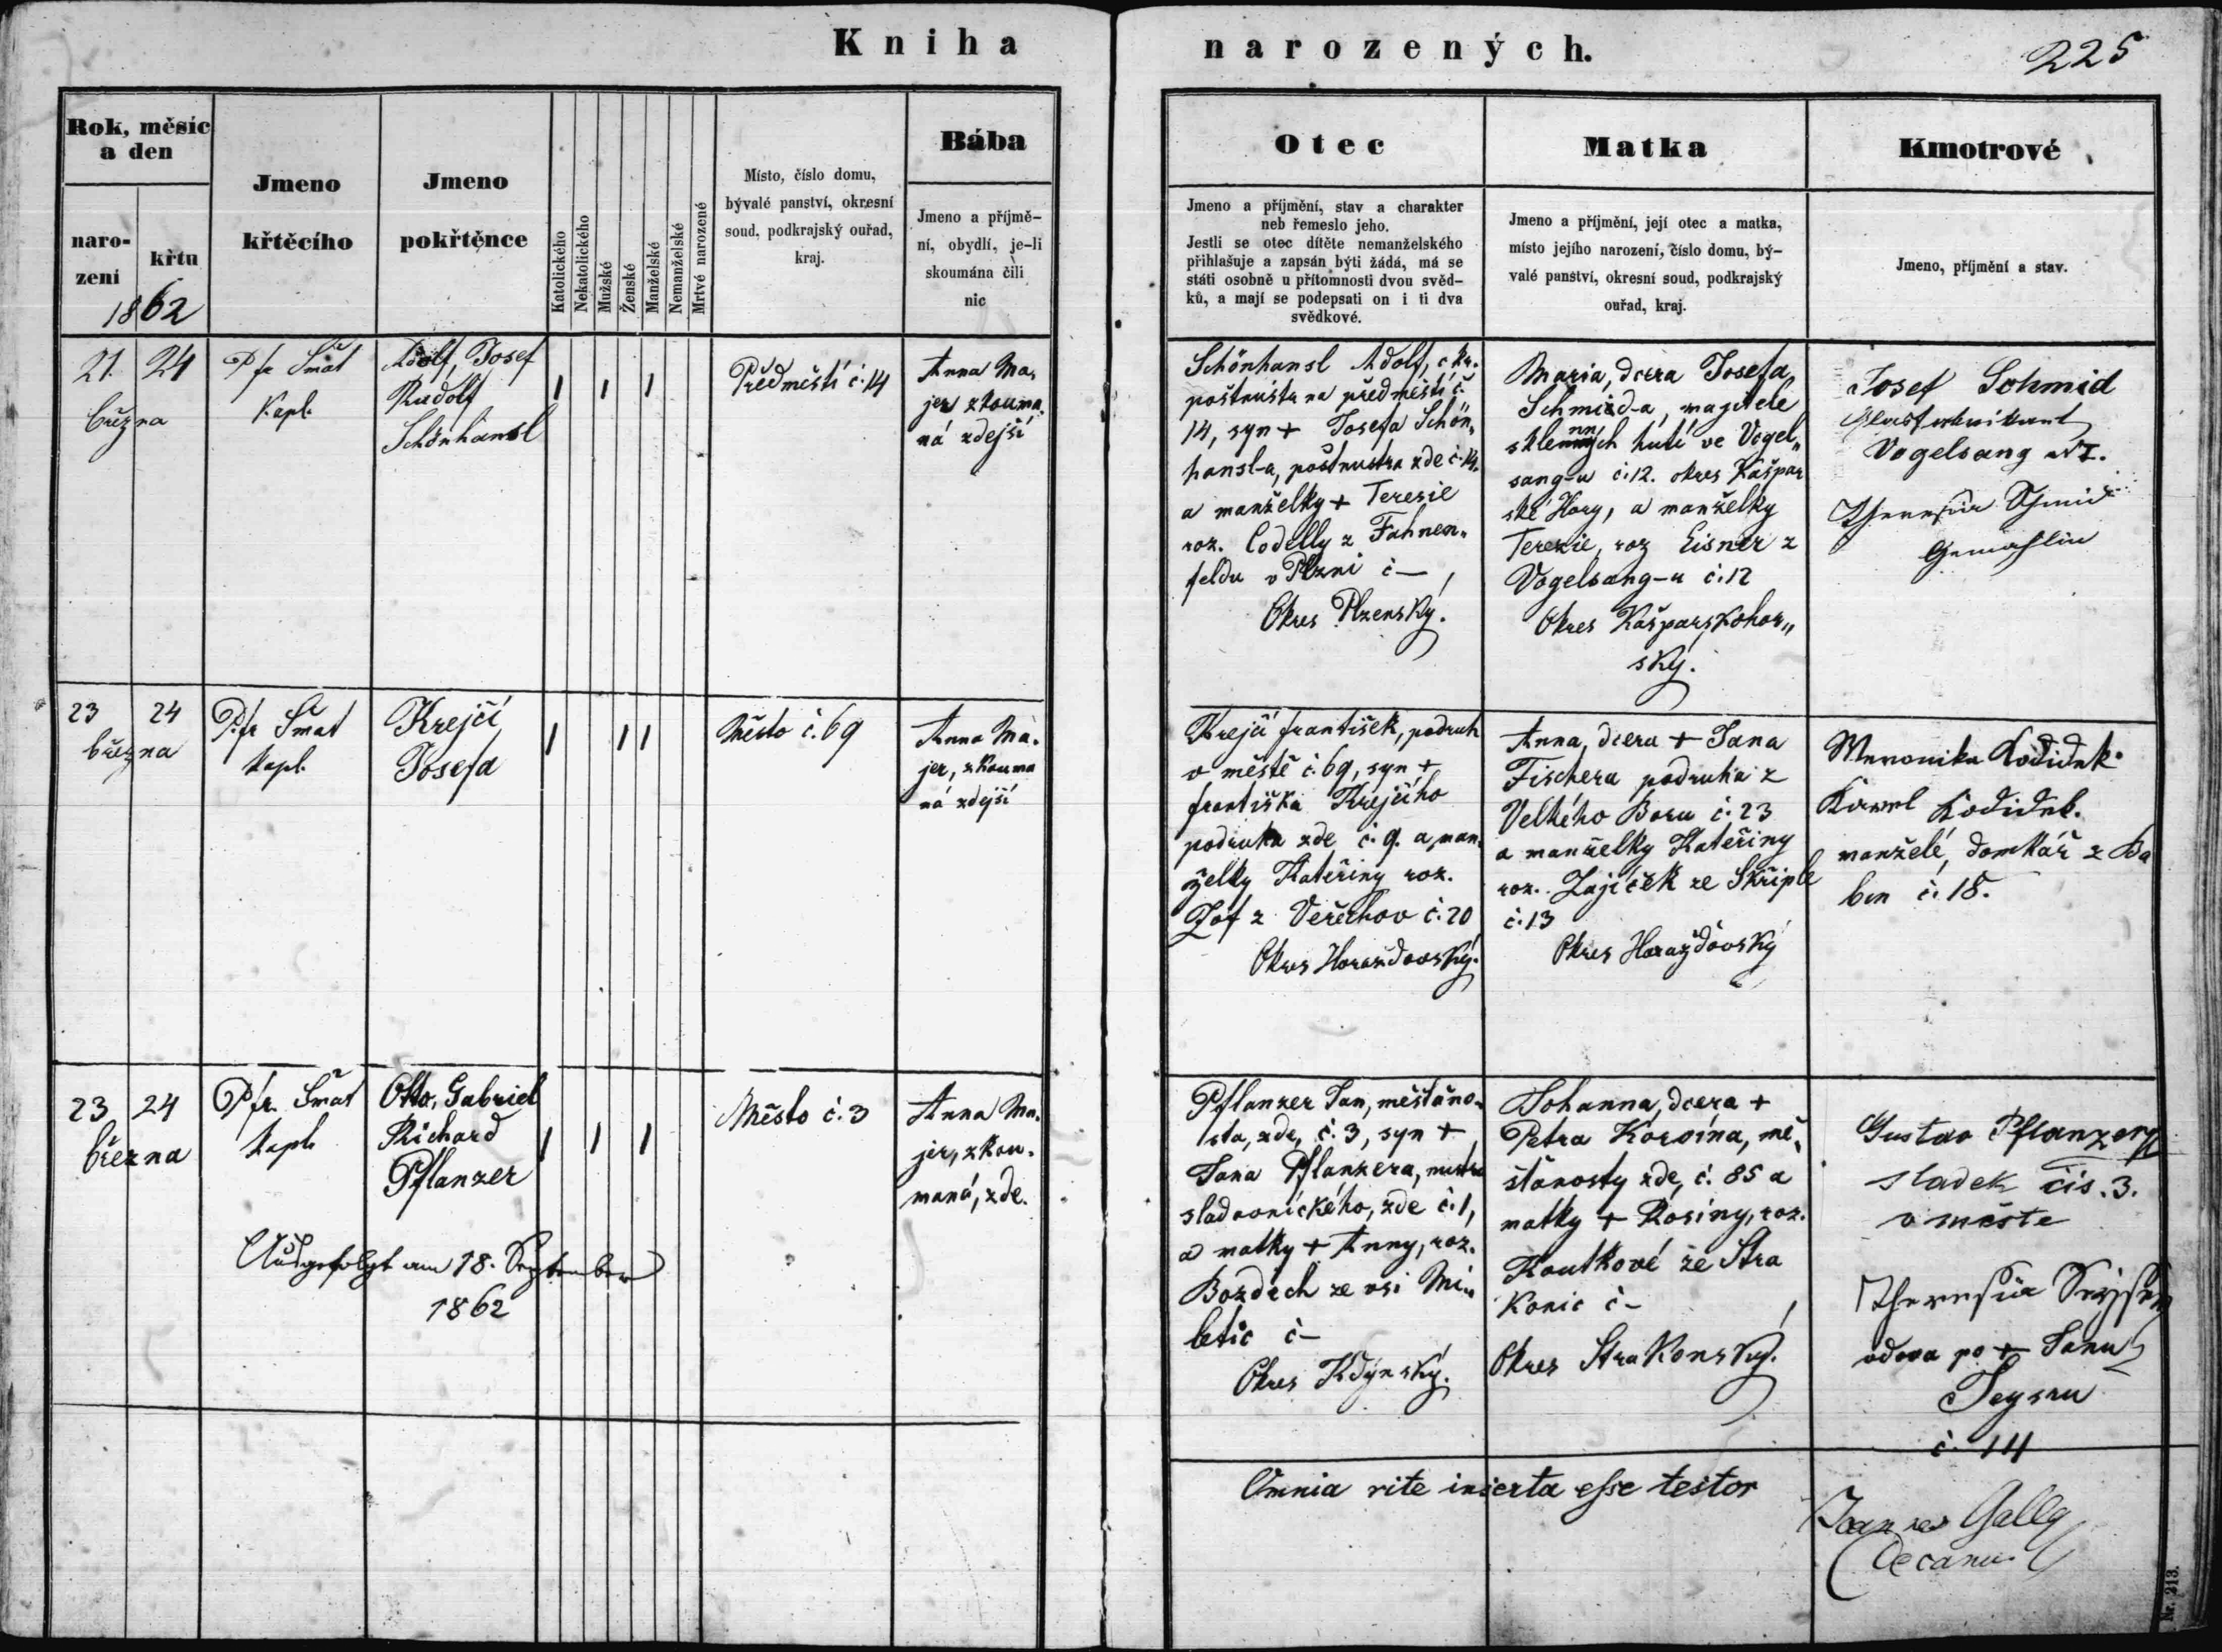 Kniha narozených.
225
Rok, měsíc
a den
naro-
zení
křtu
1862
Jmeno
křtěcího
Jmeno
pokřtěnce
Katolického
Nekatolického
Mužské
Ženské
Manželské
Nemanželské
Mrtvé narozené
Místo, číslo domu,
bývalé panství, okresní
soud, podkrajský ouřad,
kraj.
Bába
Jmeno a příjmě-
ní, obydlí, je-li
skoumána čili
nic
Otec
Jmeno a příjmění, stav a charakter
neb řemeslo jeho.
Jestli se otec dítěte nemanželského
přihlašuje a zapsán býti žádá, má se
státi osobně u přítomnosti dvou svěd-
ků, a mají se podepsati on i ti dva
svědkové.
Matka
Jmeno a příjmění, její otec a matka,
místo jejího narození, číslo domu, bý-
valé panství, okresní soud, podkrajský
ouřad, kraj.
Kmotrové
Jmeno, příjmění a stav.
21. 24
března
Pfr Šmat
Kapl.
Adolf, Josef
Rudolf
Schönhansl
Předměstí č. 14
Anna Ma,
jer zkouma,
ná zdejší
Schönhansl Adolf, c. kr.
poštmistr na předměstí č.
14, syn + Josefa Schön,,
hansl-a, poštmistra zde č. 14.
a manželky + Teresie
roz. Codelly z Fahnen,,
feldu v Plzni č —,
Okres Plzenský.
Maria, dcera Josefa,
Schmid-a, majitele
sklenných hutí ve Vogel,,
sang-u č. 12. okres Kašpar
ské Hory, a manželky
Terezie, roz Eisner z
Vogelsang-u č. 12
Okres Kašparskohor,,
ský.
Josef Schmid
Glasfabrikant
Vogelsang
Theresia Schmid
Gemahlin
23 24
března
P. fr Šmat
Kapl.
Krejčí
Josefa
Město č. 69
Anna Ma,
jer, zkouma
ná zdejší
Krejčí František, podruh
v městě č. 69, syn +
Františka Krejčího
podruha zde č. 9. a man,
želky Kateřiny roz.
Zof z Veřechov č. 20
Okres Horažďovský.
Anna, dcera + Jana
Fischera podruha z
Velkého Boru č. 23
a manželky Kateřiny
roz. Zajíček ze Skřiple
č. 13
Okres Horažďovský
Weronika
Karel
manželé, domkář z Ba
bin č. 18.
23 24
března
Pfr. Šmat
Kapl.
Otto, Gabriel
Richard
Pflanzer
Město č. 3
Anna Ma,
jer, zkou-
maná, zde.
Ausgefolgt am 18. September
1862
Pflanzer Jan, měšťáno-
sta, zde, č. 3, syn +
Jana Pflanzera, mistra
sladovnického, zde č. 1,
a matky + Anny, roz.
Bozděch ze vsi Mi,,
letic č —
Okres Kdýnský.
Johanna, dcera +
Petra Korvína, mě,
šťanosty zde, č. 85 a
matky + Rosiny, roz.
Koutkové ze Stra
konic č —,
Okres Strakonský.
Gustav Pflanzer
sladek čis. 3.
v městě
Theresia
vdova po + Janu
Seysru
č. 14
Omnia rite inserta esse testor
Joannes Gally
Decanus.
Nr. 213.